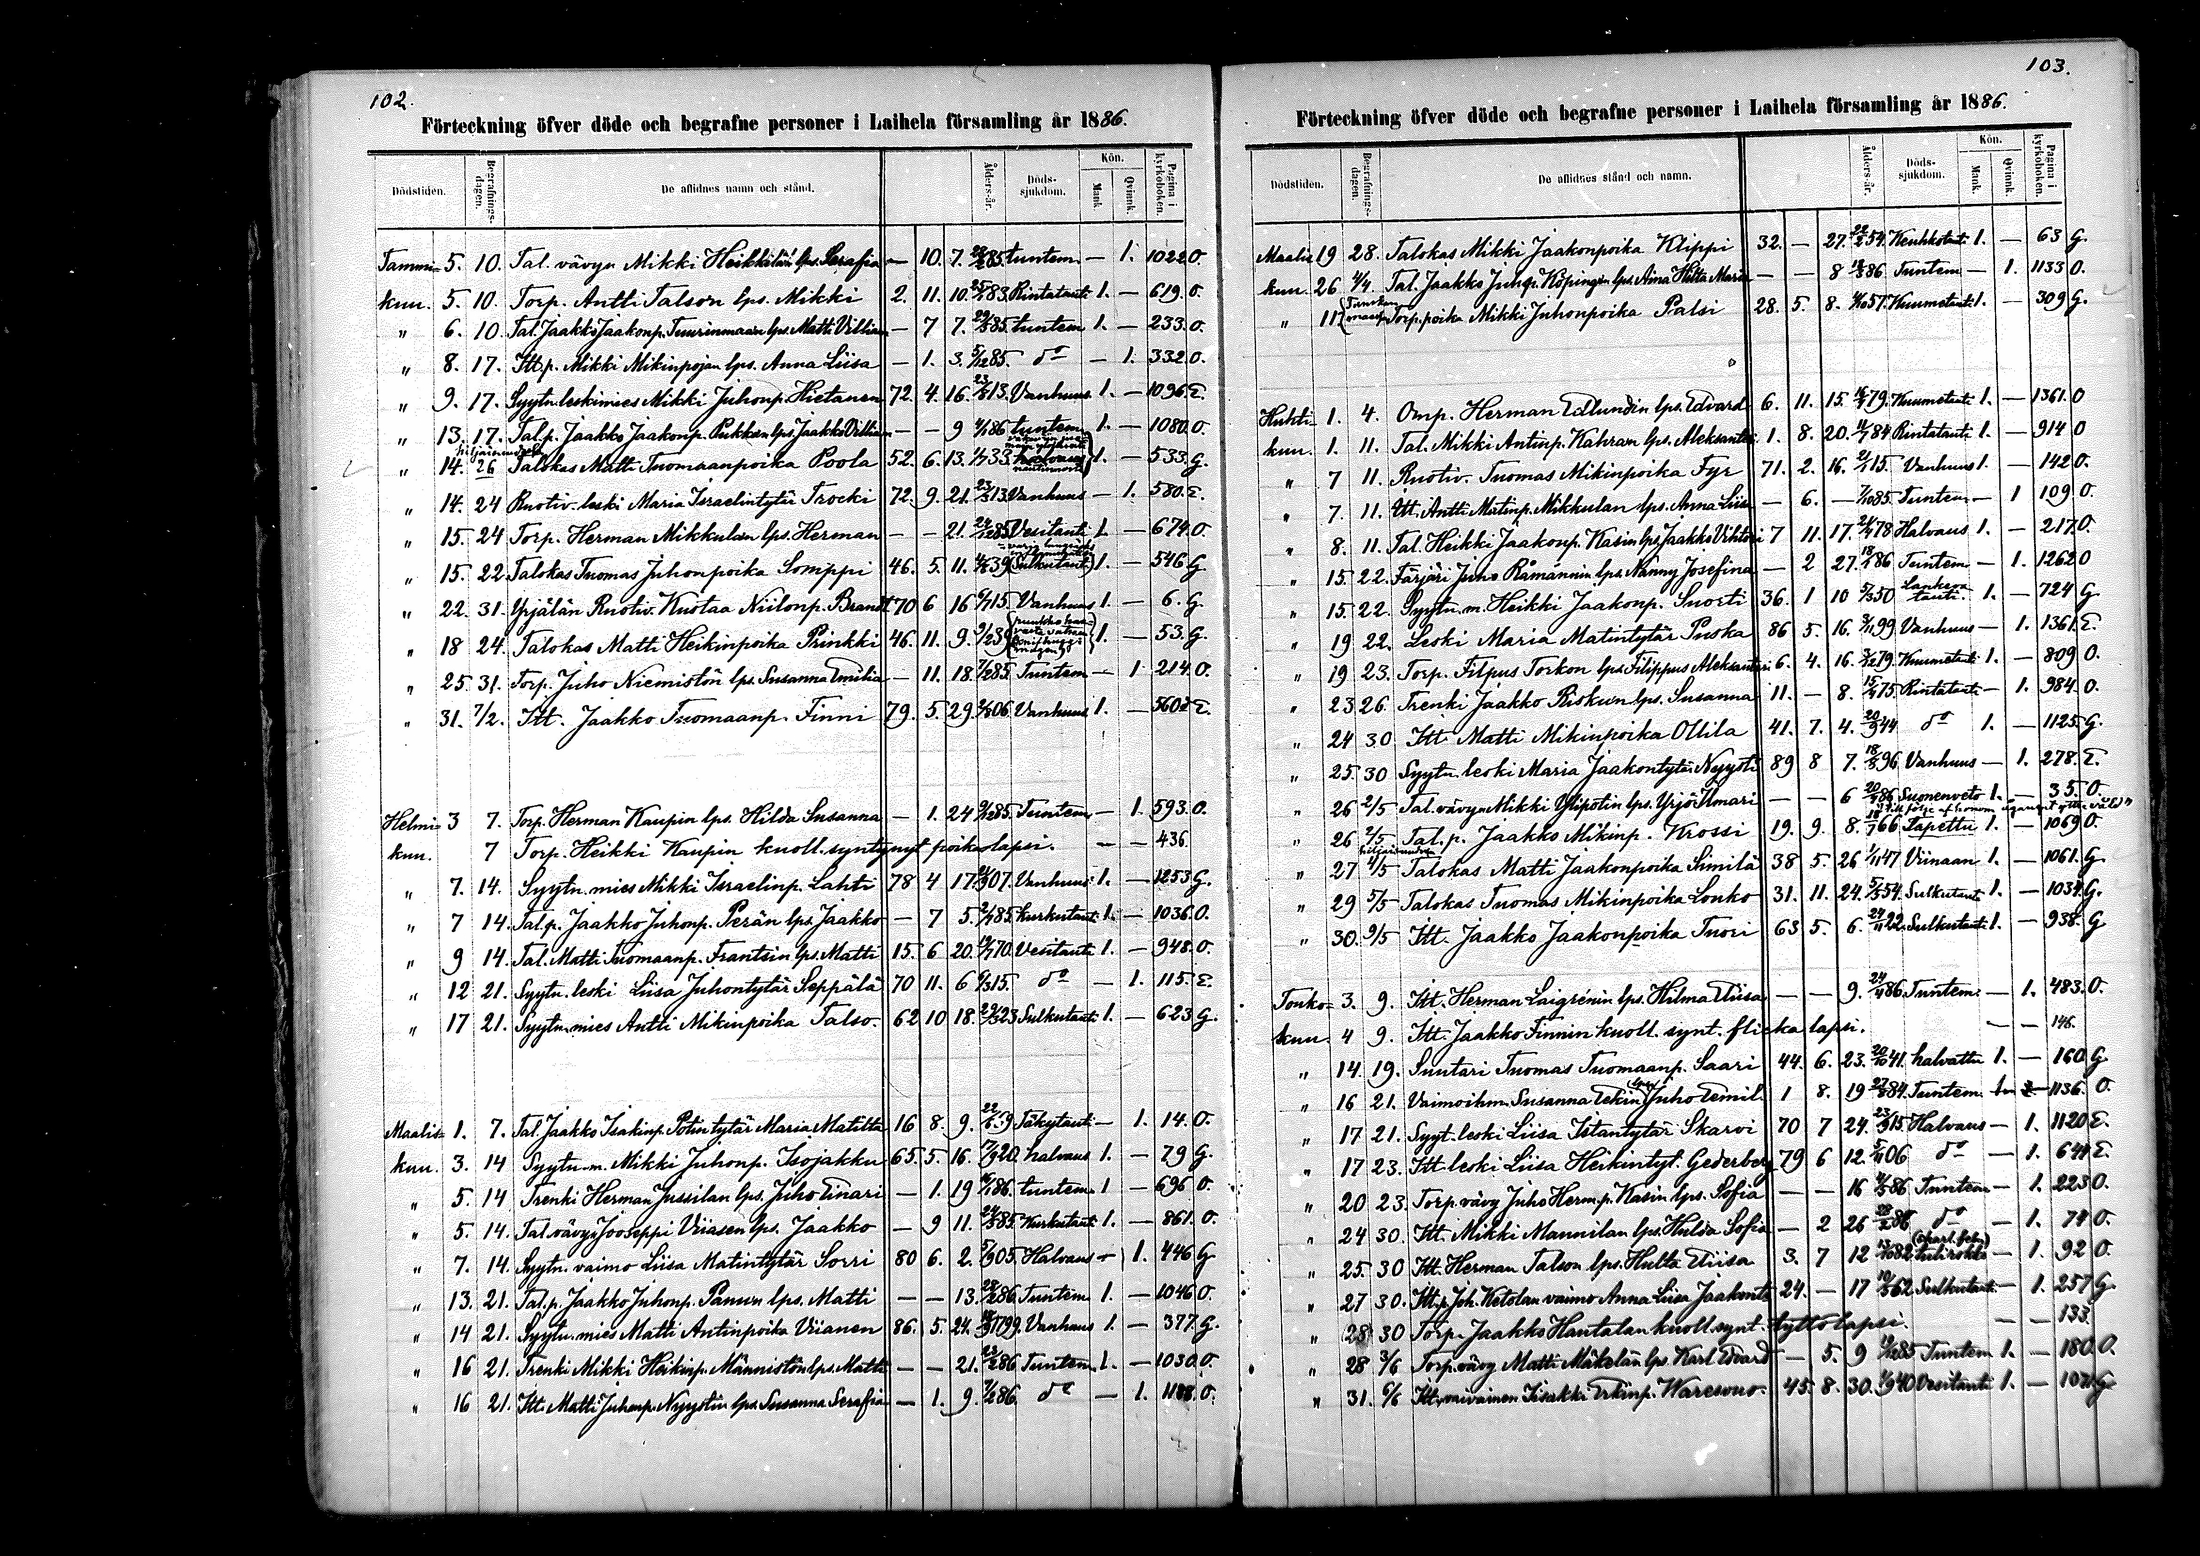 102.
Förteckning öfver döde och begrafne personer i Laihela församling år 1886.
Dödstiden. Begrafnings-dagen. De aflidnes namn och stånd. Ålders-år. Döds-sjukdom. Kön. Mank. Qvinnk. Pagina i kyrkoboken.
Tammi- 5. 10. Tal. vävyn Mikki Heikkilän lps. Serafia — 10. 7. 85. tuntem — 1. 1022 O.
kuu. 5. 10. Torp. Antti Talson lps. Mikki 2. 11. 10. 83. Rintatauti 1. — 619. O.
" 6. 10. Tal. Jaakko Jaakonp. Tuurinmaan lps. Matti Villiam — 7 7. 29/5 85. tuntem 1. — 233. O.
" 8. 17. Itt.p. Mikki Mikinpojan lps. Anna Liisa — 1. 3. 5/12 85. do — 1. 332 O.
" 9. 17. Syytn. leskimies Mikki Juhonp. Hietanen 72. 4. 16. 23/8 13. Vanhuus 1. — 1096. E.
" 13. 17. Tal.p. Jaakko Jaakonp. Pukkan lps. Jaakko Villiam — — 9 4/1 86 tuntem 1. — 1080. O.
" 14. 26 Talokas Matti Tuomaanpoika Poola 52. 6. 13. 1/7 33. 1. — 533. G.
" 14. 24 Ruotiv. leski Maria Israelintytär Trocki 72. 9. 21. 23/3 13. Vanhuus — 1. 580. E.
" 15. 24 Torp. Herman Mikkulan lps. Herman — — 21. 24/12 85. Vesitauti 1. — 674. O.
" 15. 22. Talokas Tuomas Juhonpoika Somppi 46. 5. 11. 4/8 39 (Sulkutaut.) 1. — 546 G.
" 22. 31. Yrjälän Ruotiv. Kustaa Niilonp. Brandt 70 6 16 6/7 15. Vanhuus 1. — 6. G.
" 18 24. Talokas Matti Heikinpoika Prinkki 46. 11. 9. 9/2 39 1. — 53. G.
" 25. 31. Torp. Juho Niemistön lps. Susanna Emilia — 11. 18. 7/2 85. Tuntem — 1 214. O.
" 31. 7/2. Itt. Jaakko Tuomaanp. Finni 79. 5. 29. 2/8 06. Vanhuus 1. — 560 E.
Helmi- 3 7. Torp. Herman Kaupin lps. Hilda Susanna — 1. 24 9/12 85. Tuntem — 1. 593. O.
kuu. 7 Torp. Heikki Kaupin kuoll. syntynyt poikalapsi. — — 436.
" 7. 14. Syytn. mies Mikki Israelinp. Lahti 78 4 17. 07. Vanhuus 1. — 1253 G.
" 7 14. Tal.p. Jaakko Juhonp. Perän lps. Jaakko — 7 5. 2/7 85. Kurkutaut. 1. — 1036. O.
" 9 14. Tal. Matti Tuomaanp. Frantsin lps. Matti 15. 6 20. 70. Vesitauti 1. — 948. O.
" 12 21. Syytn. leski Liisa Juhontytär Seppälä 70 11. 6 6/3 15. do — 1. 115. E.
" 17 21. Syytn. mies Antti Mikinpoika Talso. 62 10 18. 29/3 23 Sulkutauti 1. — 623 G.
Maalis- 1. 7. Tal. Jaakko Isakinp. Potin tytär Maria Matilta 16 8. 9. 22/6 69 Täkytauti — 1. 14. O.
kuu. 3. 14 Syytn. m. Mikki Juhonp. Isojakku 65. 5. 16. 17/9 20. halvaus 1. — 79 G.
" 5. 14 Trenki Herman Jussilan lps. Juho Einari — 1. 19 1/86. tuntem 1 — 696 O.
" 5. 14. Tal. vävyn Jooseppi Viiasen lps. Jaakko — 9 11. 85. Kurkutaut. 1. — 861. O.
" 7. 14. Syytn. vaimo Liisa Matintytär Sorri 80 6. 2. 5/9 05. Halvaus — 1. 446 G
" 13. 21. Tal.p. Jaakko Juhonp. Panun lps. Matti — — 13. 28/2 86. Tuntem 1. — 1046 O.
" 14 21. Syytn. mies Matti Antinpoika Viianen 86. 5. 24. 1799. Vanhuus 1. — 377. G.
" 16 21. Trenki Mikki Heikinp. Männistön lps. Matti — — 21. 23/2 86 Tuntem 1. — 1030. O.
" 16 21. Itt. Matti Juhonp. Nyystin lps. Susanna Serafia — 1. 9. 7/2 86. do — 1. O.
103.
Förteckning öfver döde och begrafne personer i Laihela församling år 1886.
Dödstiden. Begrafnings-dagen. De aflidnes stånd och namn. Ålders-år. Döds-sjukdom. Kön. Mank. Qvinnk. Pagina i kyrkoboken.
Maalis 19 28. Talokas Mikki Jaakonpoika Klippi 32. — 27. 22/2 54. Keuhkotaut. 1. — 63 G.
kuu. 26. 4/4. Tal. Jaakko Juhp. Köpingin lps. Aina Hilta Maria — — 8 18/3 86. Tuntem — 1. 1133 O.
" 11 Torp. poika Mikki Juhonpoika Palsi 28. 5. 8. 57. Kuumetaut. 1. — 309 G.
Huhti- 1. 4. Omp. Herman Edlundin lps. Edvard 6. 11. 15. 79. Kuumetauti 1. — 1361. O
kuu. 1. 11. Tal. Mikki Antinp. Kahran lps. Aleksanteri 1. 8. 20. 84 Rintatauti 1. — 914 O
" 7 11. Ruotiv. Tuomas Mikinpoika Fyr 71. 2. 16. 21/1 15. Vanhuus 1. — 142 O.
" 7. 11. Itt. Antti Matinp. Mikkulan lps. Anna Liisa — 6. — 7/10 85. Tuntem — 1 109. O.
" 8. 11. Tal. Heikki Jaakonp. Kasin lps. Jaakko Vihtori 7 11. 17. 78 Halvaus 1. — 217. O.
" 15. 22. Färjäri Juho Råmannin lps. Nanny Josefina — 2 27. 18/1 86 Tuntem — 1. 1262 O
" 15. 22. Syytn. m. Heikki Jaakonp. Suorti 36. 1 10 5/3 50 1. — 724 G.
" 19 22. Leski Maria Matintytär Puska 86 5. 16. 3/11 99. Vanhuus — 1. 1361. E.
" 19 23. Torp. Filpus Torkon lps. Filippus Aleksanteri 6. 4. 16. 3/12 79. Kuumetauti 1. — 809 O.
" 23 26. Trenki Jaakko Riskun lps. Susanna 11. — 8. 15/4 75. Rintatauti — 1. 984. O.
" 24 30 Itt. Matti Mikinpoika Ollila 41. 7. 4. 20/9 44 do 1. — 1125. G.
" 25. 30 Syytn. leski Maria Jaakontytär Nyysti 89 8 7. 18/8 96 Vanhuus — 1. 278. E.
" 26 2/5 Tal. vävyn Mikki Ylipotin lps. Yrjö Ilmari — — 6 20/4 86 Suonenveto 1. — 35. O.
" 26 2/5 Tal. p. Jaakko Mikinp. Krossi 19. 9. 8. 18/7 66 Tapettu 1. — 1069 O.
" 27 4/5 Talokas Matti Jaakonpoika Similä 38 5. 26 1/11 47 Viinaan 1. — 1061. G.
" 29 5/5 Talokas Tuomas Mikinpoika Lonko 31. 11. 24. 5/5 54. Sulkutaut. 1. — 1034. G.
" 30. 9/5 Itt. Jaakko Jaakonpoika Tuori 63 5. 6. 24/11 22. Sulkutaut. 1. — 938. G
Touko- 3. 9. Itt. Herman Laigrénin lps. Hilma Eliisa — — 9. 24/4 86. Tuntem. — 1. 483. O.
kuu. 4 9. Itt. Jaakko Finnin kuoll. synt. flicka lapsi. — — 146.
" 14. 19. Suutari Tuomas Tuomaanp. Saari 44. 6. 23. 20/10 41. halvattu 1. — 160. G
" 16 21. Vaimoihm. Susanna Ekin lps. Juho Emil 1 8. 19 27/8 84. Tuntem. 1136. O.
" 17 21. Syyt. leski Liisa Istantytär Skarvi 70 7 24. 23/9 15 Halvaus — 1. 1120 E.
" 17 23. Itt. leski Liisa Heikintyt. Gederberg 79 6 12. 5/11 06 do — 1. E.
" 20 23. Torp. vävy Juho Herm.p. Kasin lps. Sofia — — 16 4/5 86 Tuntem — 1. 223 O.
" 24 30. Itt. Mikki Mannilan lps. Hulda Sofia — 2 26 28/2 86 do — 1. 74 O.
" 25. 30 Itt. Herman Talson lps. Hulta Eliisa 3. 7 12 13/10 82 (skarl. feb.) tulirokko — 1. 92 O.
" 27 30. Itt.p. Joh. Ketolan vaimo Anna Liisa Jaakont. 24. — 17 10/5 62 Sulkutaut. 1. 257 G.
" 28 30 Torp. Jaakko Hautalan kuoll. synt. tyttölapsi. — — 133.
" 28 3/6 Torp. vävy Matti Mäkelän lps. Karl Edvard — 5. 9 19/12 85 Tuntem 1. — 180. O.
" 31. 6/6 Itt. vaivainen Iisakki Erkinp. Waresmo. 45. 8. 30. 1/9 40 Vesitauti 1. — G